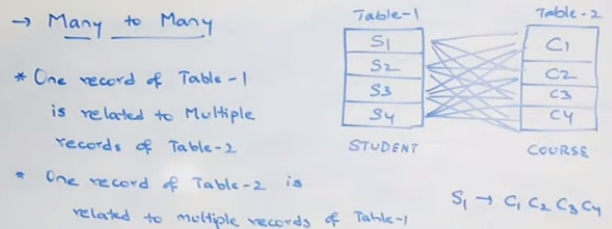 → Many to Many
* One record of Table-1
is related to Multiple
records of Table-2
* One record of Table-2 is
related to multiple records of Table-1
Table-1
S1
S2
S3
S4
STUDENT
Table-2
C1
C2
C3
C4
COURSE
S1 → C1 C2 C3 C4